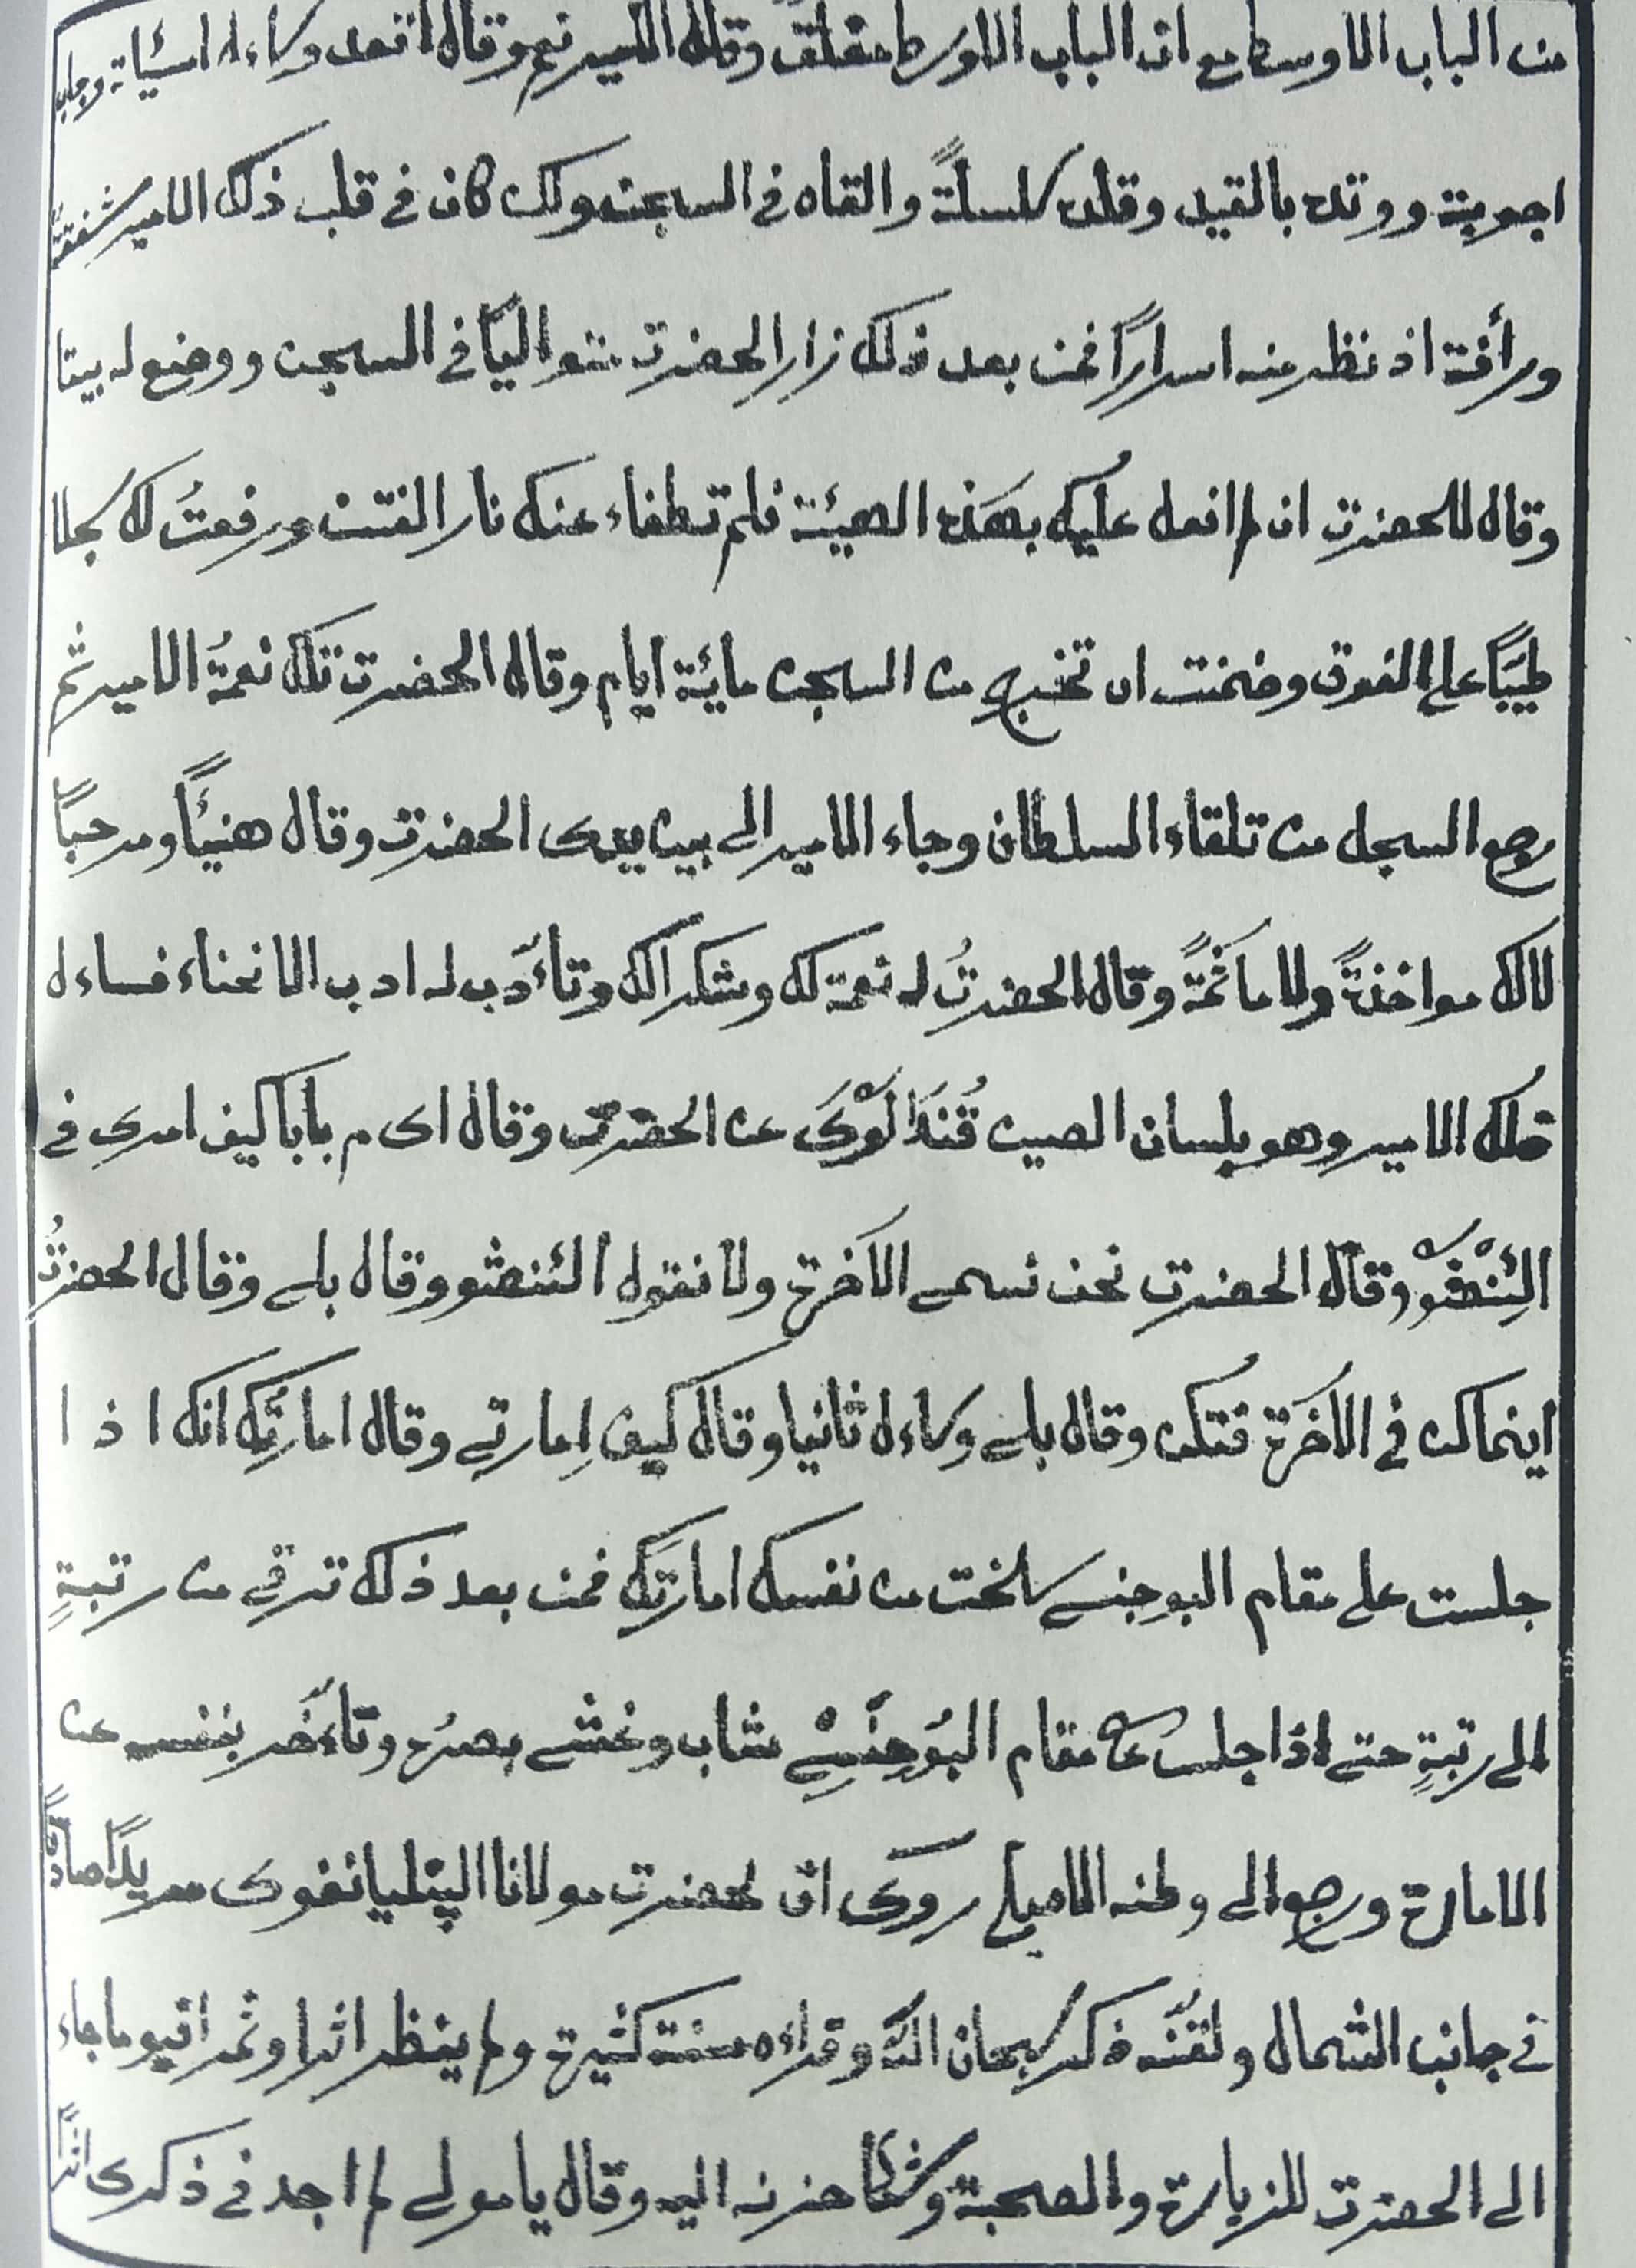 من الباب الاوسط مع ان الباب الاوسط مغلق وقال الامير نعم وقال اقعد وساءله اسئلة وجاب
اجوبة ووتد بالقيد وقلد سلسلةً والقاه فى السجن ولكن كان فى قلب ذلك الامير شفقةً
ورأفة اذ نظر منه اسراراً فمن بعد ذلك زار الحضرت متواليًا فى السجن ووضع له بيتا
وقال للحضرت ان لم افعل عليك بهذه الهيئة فلم تطفاء عنك نار الفتن ورفعتُ لك سجلا
طيّبًا على الفوق وضمنت ان تخرج من السجن مائة ايام وقال الحضرت تلك نعمةُ الامير ثم
رجع السجل من تلقاء السلطان وجاء الامير الى بين يدى الحضرت وقال هنيئًا ومرحبًا
لالك مواخذةً ولا ماثمةً وقال الحضرتُ له نعمة لك وشكرا لك وتأدّب له ادب الانحناء فساءل
ذلك الامير وهو بلسان الصين قُنْدَالَوْىَ عن الحضرت وقال اى م بابا كيف امرى فى
الئِنْضُو وقال الحضرت نحن نسمى الآخرة ولا نقول الئنضو وقال بلى وقال الحضرتُ
اينما كنت فى الآخرة فتكن وقال بلى وساءل ثانيا وقال كيف اِمارتى وقال امارتك انك اذا
جلست على مقام البوجنسى سلخت من نفسك امارتك فمن بعد ذلك ترقى من رتبةٍ
الى رتبةٍ حتى اذا جلس على مقام البُوجِنْسِىْ شاب وغشى بصرُه وتأخّر بنفسه عن
الامارة ورجع الى وطنه الاميلى روى ان لحضرت مولانا الپنليانفوى مريدًا صادقًا
فى جانب الشمال ولقنه ذكر سبحان الله وقراءه سنة كثيرة ولم ينظر اثرا وثمرا فيوما جاء
الى الحضرت للزيارة والصحبة وشكا حزنه اليه وقال يا مولى لم اجد فى ذكرى اثرًا